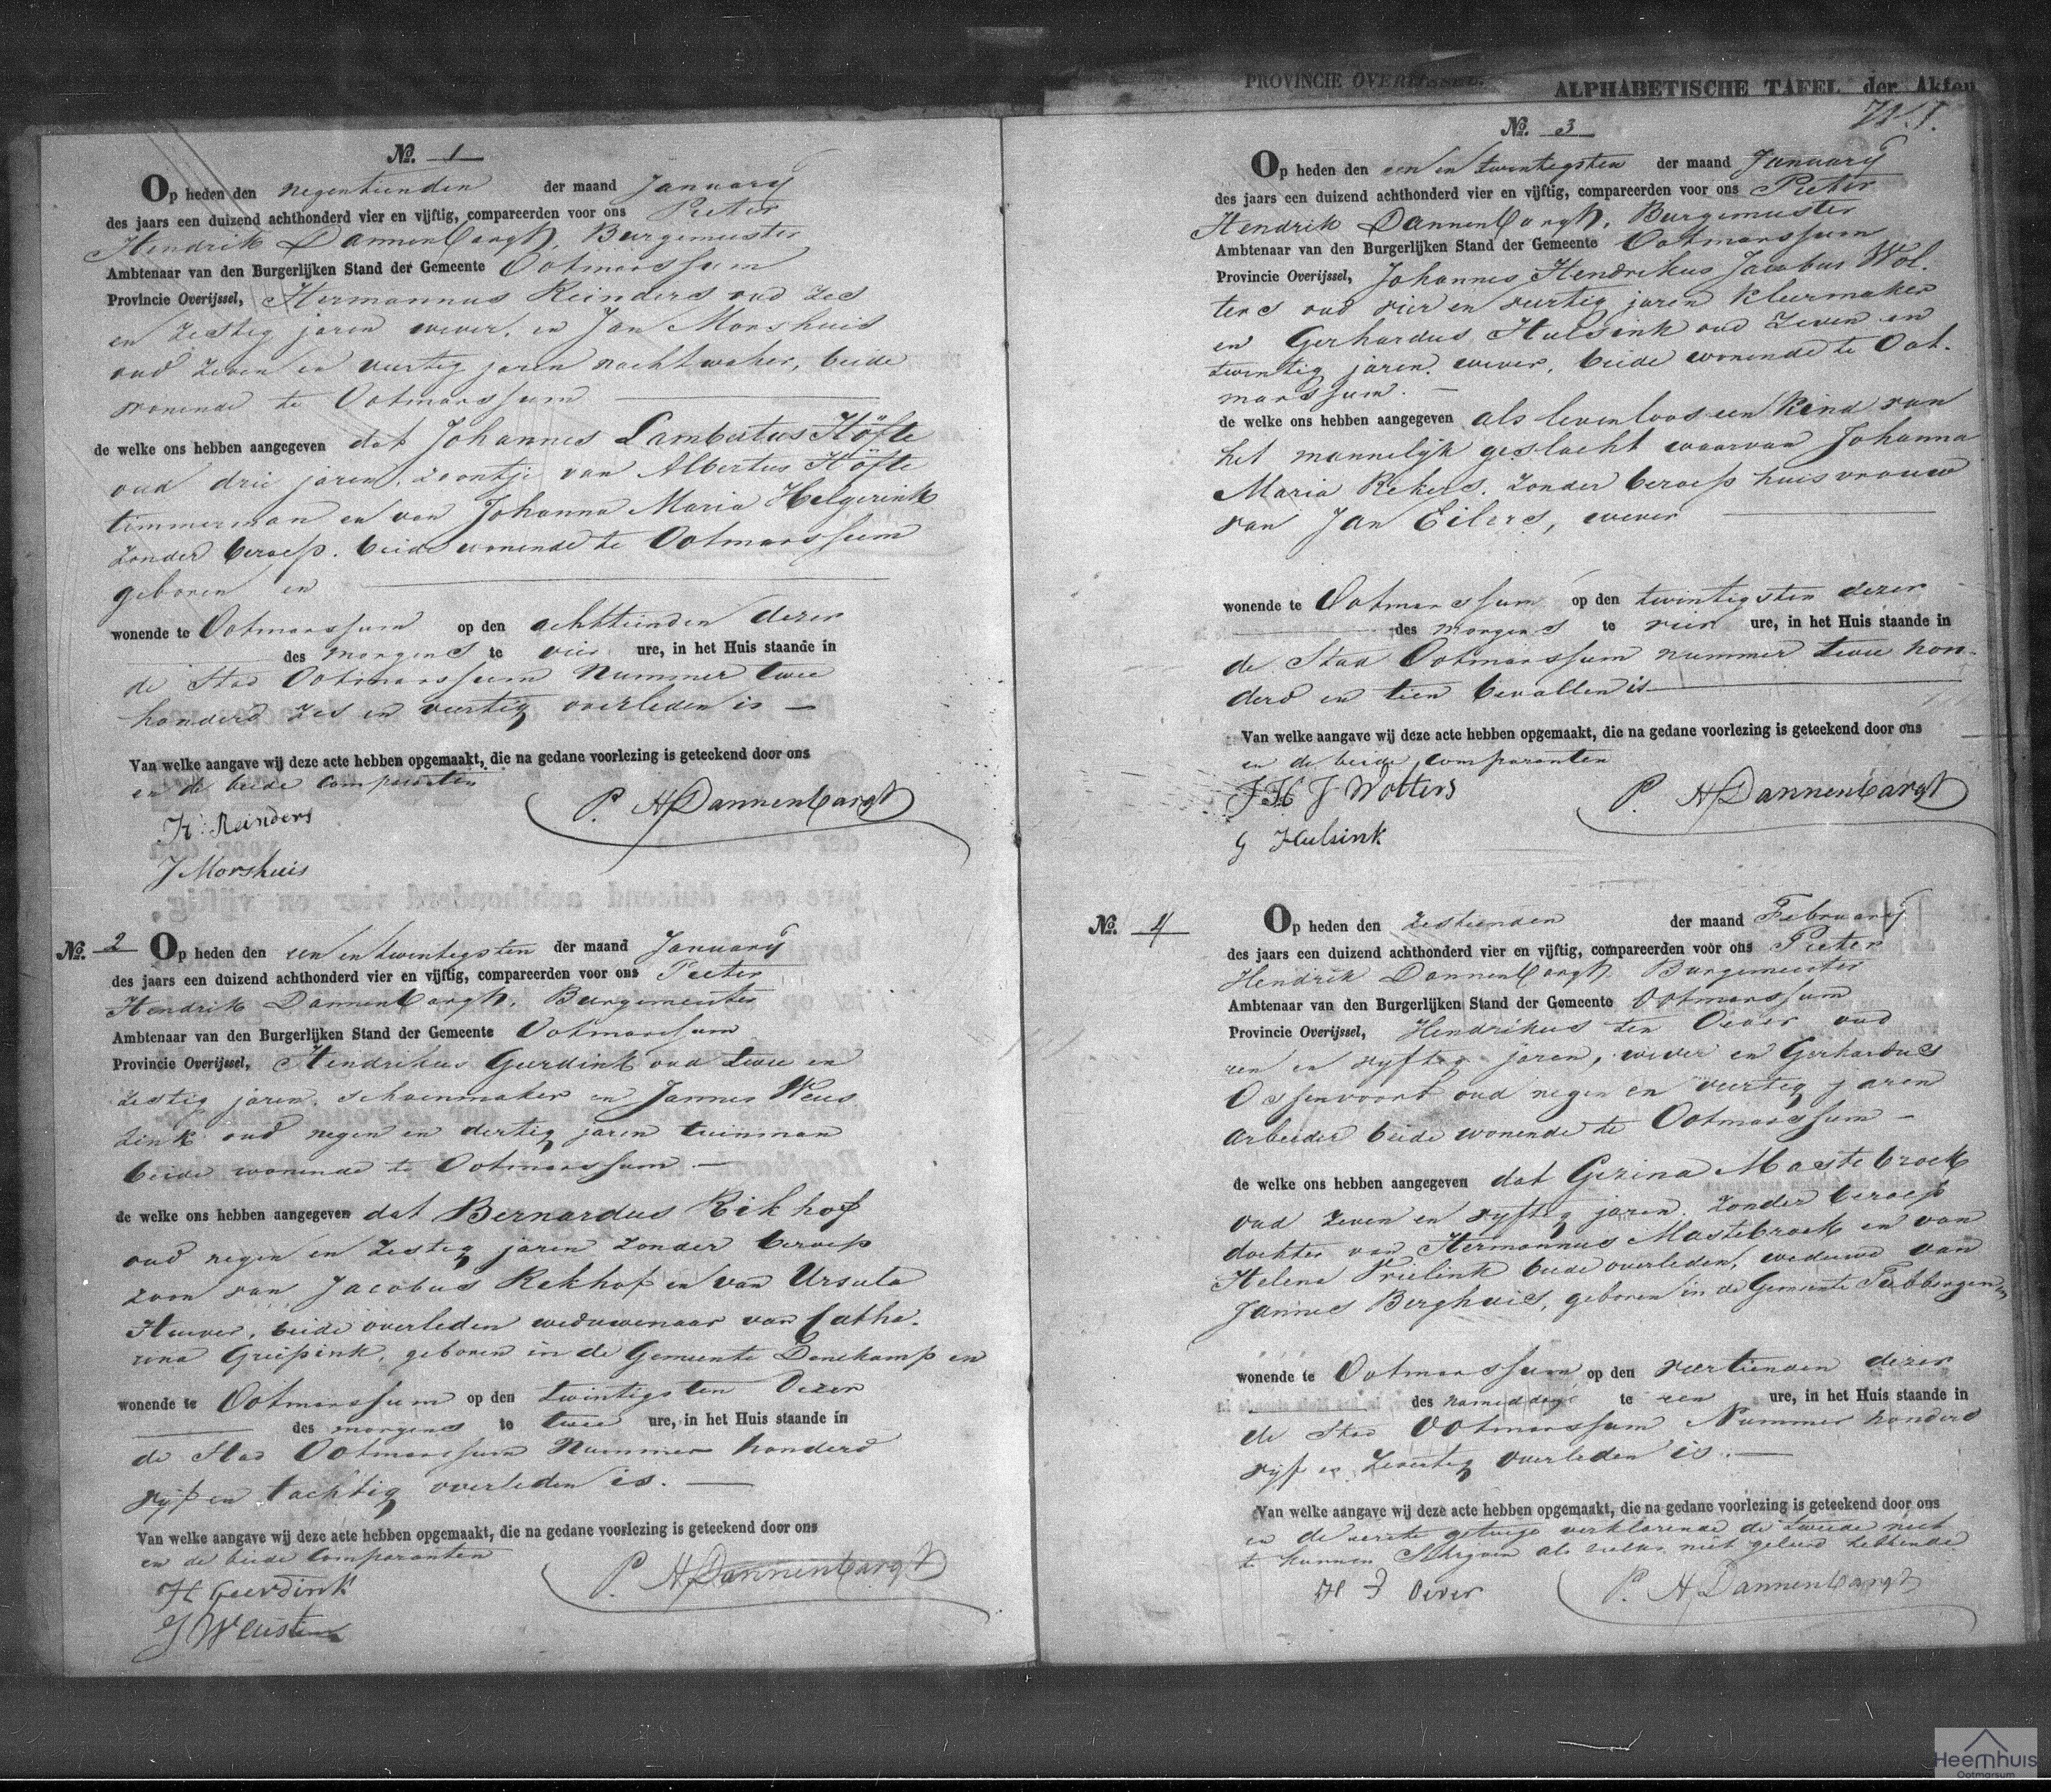 PROVINCIE OVERIJSSEL.
ALPHABETISCHE TAFEL der Akten
No. 1
Op heden den negentienden der maand January
des jaars een duizend achthonderd vier en vijftig, compareerden voor ons Pieter
Hendrik Dannenbargh, Burgemeester
Ambtenaar van den Burgerlijken Stand der Gemeente Ootmarssum
Provincie Overijssel, Hermannus Reinders oud zes
en zestig jaren wever, en Jan Morshuis
oud zeven en veertig jaren nachtwaker, beide
wonende te Ootmarssum
de welke ons hebben aangegeven dat Johannes Lambertus Höfte
oud drie jaren, zoontje van Albertus Höfte
timmerman en van Johanna Maria Helgerink
zonder beroep, beide wonende te Ootmarssum
geboren en
wonende te Ootmarssum op den achttienden dezer
des morgens te vier ure, in het Huis staande in
de Stad Ootmarssum Nummer twee
honderd zes en veertig overleden is
Van welke aangave wij deze acte hebben opgemaakt, die na gedane voorlezing is geteekend door ons
en de beide comparanten
H: Reinders
P. H Dannenbargh
J Morshuis
No. 2
Op heden den een en twintigsten der maand January
des jaars een duizend achthonderd vier en vijftig, compareerden voor ons Pieter
Hendrik Dannenbargh, Burgemeester
Ambtenaar van den Burgerlijken Stand der Gemeente Ootmarssum
Provincie Overijssel, Hendrikus Geerdink oud twee en
zestig jaren, schoenmaker en Jannes Weus
zink oud negen en dertig jaren tuinman
beide wonende te Ootmarssum
de welke ons hebben aangegeven dat Bernardus Rekhof
oud negen en zestig jaren zonder beroep
zoon van Jacobus Rekhof en van Ursula
beide overleden weduwenaar van Catha-
rina Griepink, geboren in de Gemeente Denekamp en
wonende te Ootmarssum op den twintigsten dezer
des morgens te twee ure, in het Huis staande in
de Stad Ootmarssum Nummer honderd
vijf en tachtig overleden is.
Van welke aangave wij deze acte hebben opgemaakt, die na gedane voorlezing is geteekend door ons
en de beide comparanten
H Geerdink
P. H Dannenbargh
No. 3
Op heden den een en twintigsten der maand January
des jaars een duizend achthonderd vier en vijftig, compareerden voor ons Pieter
Hendrik Dannenbargh, Burgemeester
Ambtenaar van den Burgerlijken Stand der Gemeente Ootmarssum
Provincie Overijssel, Johannes Hendrikus Jacobus Wol-
ters oud vier en veertig jaren kleermaker
en Gerhardus Hulsink oud zeven en
twintig jaren, wever, beide wonende te Oot-
marssum.
de welke ons hebben aangegeven als levenloos een kind van
het mannelijk geslacht waarvan Johanna
Maria Rekers, zonder beroep huisvrouw
van Jan Eilers, wever
wonende te Ootmarssum op den twintigsten dezer
des morgens te vier ure, in het Huis staande in
de Stad Ootmarssum nummer twee hon-
derd en tien bevallen is
Van welke aangave wij deze acte hebben opgemaakt, die na gedane voorlezing is geteekend door ons
en de beide comparanten
J H J Wolters
P. H Dannenbargh
G Hulsink
No. 4
Op heden den zestienden der maand February
des jaars een duizend achthonderd vier en vijftig, compareerden voor ons Pieter
Hendrik Dannenbargh, Burgemeester
Ambtenaar van den Burgerlijken Stand der Gemeente Ootmarssum
Provincie Overijssel, Hendrikus ten Oever oud
een en vyftig jaren, wever en Gerhardus
Ossenvoort oud negen en veertig jaren
arbeider beide wonende te Ootmarssum
de welke ons hebben aangegeven dat Gezina Mastebroek
oud zeven en vyftig jaren, zonder beroep
dochter van Hermannus Mastebroek en van
Helena Vrielink beide overleden, weduwe van
Jannes Berghuis, geboren in de Gemeente Tubbergen en
wonende te Ootmarssum op den veertienden dezer
des namiddags te een ure, in het Huis staande in
de Stad Ootmarssum Nummer honderd
vijf en zeventig overleden is.
Van welke aangave wij deze acte hebben opgemaakt, die na gedane voorlezing is geteekend door ons
en de eerste getuige verklarende de tweede niet
te kunnen schrijven als zulks niet geleerd hebbende
H T Oever
P. H Dannenbargh
Heemhuis
Ootmarsum